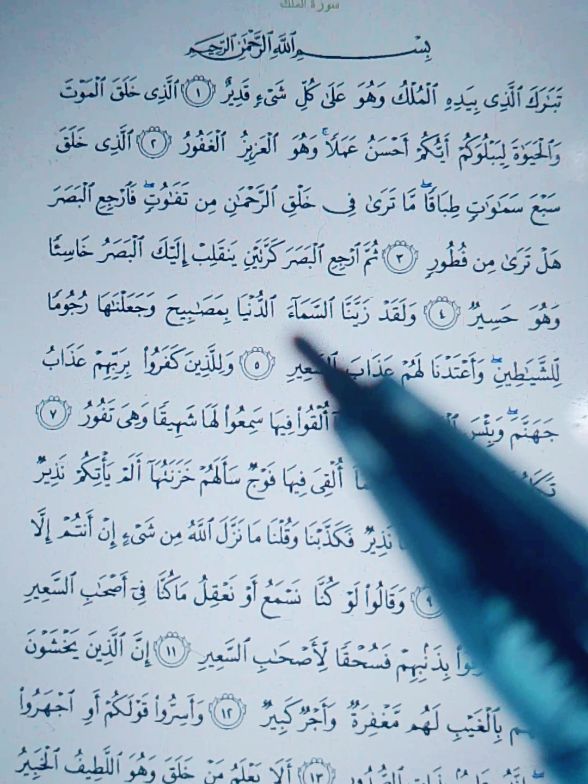 سورة الملك
بِسْمِ اللَّهِ الرَّحْمَٰنِ الرَّحِيمِ
تَبَٰرَكَ ٱلَّذِى بِيَدِهِ ٱلْمُلْكُ وَهُوَ عَلَىٰ كُلِّ شَىْءٍ قَدِيرٌ ١ ٱلَّذِى خَلَقَ ٱلْمَوْتَ
وَٱلْحَيَوٰةَ لِيَبْلُوَكُمْ أَيُّكُمْ أَحْسَنُ عَمَلًا ۚ وَهُوَ ٱلْعَزِيزُ ٱلْغَفُورُ ٢ ٱلَّذِى خَلَقَ
سَبْعَ سَمَٰوَٰتٍ طِبَاقًا ۖ مَّا تَرَىٰ فِى خَلْقِ ٱلرَّحْمَٰنِ مِن تَفَٰوُتٍ ۖ فَٱرْجِعِ ٱلْبَصَرَ
هَلْ تَرَىٰ مِن فُطُورٍ ٣ ثُمَّ ٱرْجِعِ ٱلْبَصَرَ كَرَّتَيْنِ يَنقَلِبْ إِلَيْكَ ٱلْبَصَرُ خَاسِئًا
وَهُوَ حَسِيرٌ ٤ وَلَقَدْ زَيَّنَّا ٱلسَّمَآءَ ٱلدُّنْيَا بِمَصَٰبِيحَ وَجَعَلْنَٰهَا رُجُومًا
لِّلشَّيَٰطِينِ ۖ وَأَعْتَدْنَا لَهُمْ عَذَابَ ٱلسَّعِيرِ ٥ وَلِلَّذِينَ كَفَرُوا۟ بِرَبِّهِمْ عَذَابُ
جَهَنَّمَ ۖ وَبِئْسَ أُلْقُوا۟ فِيهَا سَمِعُوا۟ لَهَا شَهِيقًا وَهِىَ تَفُورُ ٧
أُلْقِىَ فِيهَا فَوْجٌ سَأَلَهُمْ خَزَنَتُهَآ أَلَمْ يَأْتِكُمْ نَذِيرٌ
نَذِيرٌ فَكَذَّبْنَا وَقُلْنَا مَا نَزَّلَ ٱللَّهُ مِن شَىْءٍ إِنْ أَنتُمْ إِلَّا
٩ وَقَالُوا۟ لَوْ كُنَّا نَسْمَعُ أَوْ نَعْقِلُ مَا كُنَّا فِىٓ أَصْحَٰبِ ٱلسَّعِيرِ
بِذَنۢبِهِمْ فَسُحْقًا لِّأَصْحَٰبِ ٱلسَّعِيرِ ١١ إِنَّ ٱلَّذِينَ يَخْشَوْنَ
بِٱلْغَيْبِ لَهُم مَّغْفِرَةٌ وَأَجْرٌ كَبِيرٌ ١٢ وَأَسِرُّوا۟ قَوْلَكُمْ أَوِ ٱجْهَرُوا۟
١٣ أَلَا يَعْلَمُ مَنْ خَلَقَ وَهُوَ ٱللَّطِيفُ ٱلْخَبِيرُ